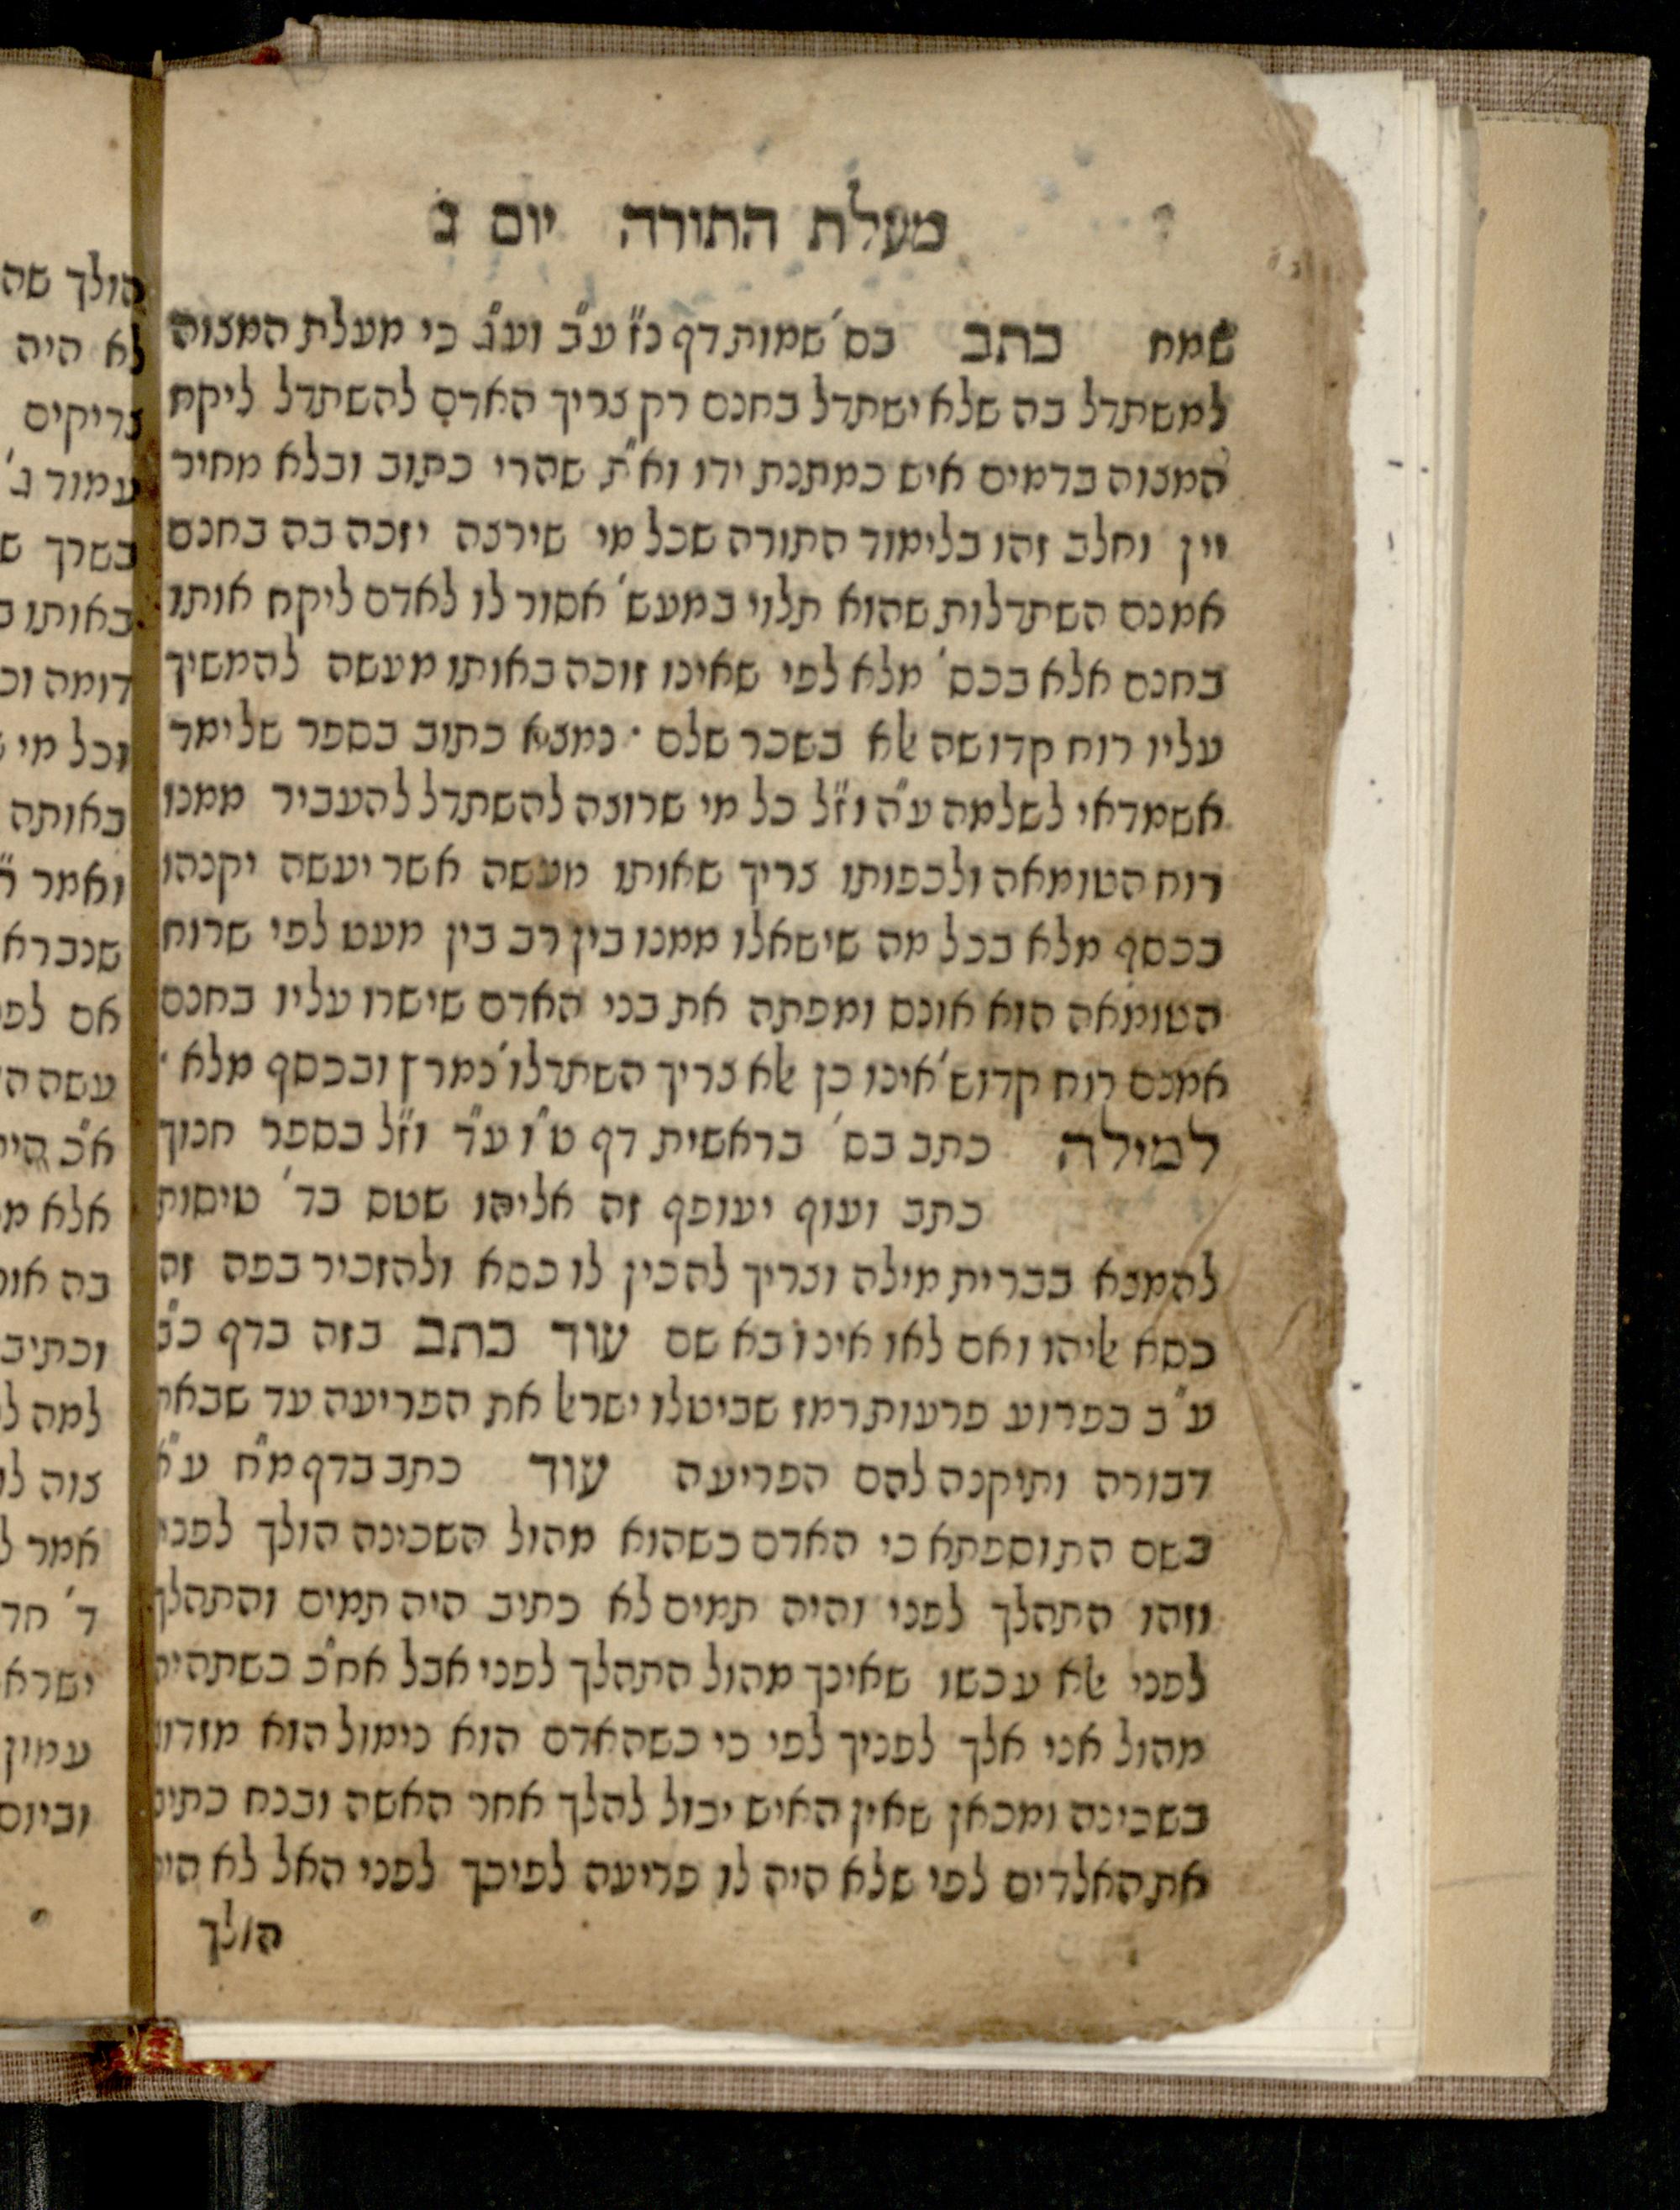 מעלת התורה יום ג
שמח כתב בס' שמות דף נ"ז ע"ב וע"ג כי מעלת המצוה
למשתדל בה שלא ישתדל בחנם רק צריך האדם להשתדל ליקח
המצוה בדמים איש כמתנת ידו וא"ת שהרי כתוב ובלא מחיר
יין וחלב זהו בלימוד התורה שכל מי שירצה יזכה בה בחנם
אמנם השתדלות שהוא תלוי במעש' אסור לו לאדם ליקח אותו
בחנם אלא בכס' מלא לפי שאינו זוכה באותו מעשה להמשיך
עליו רוח קדושה ﭏא בשכר שלם · נמצא כתוב בספר שלימד
אשמדאי לשלמה ע"ה וז"ל כל מי שרוצה להשתדל להעביר ממנו
רוח הטומאה ולכפותו צריך שאותו מעשה אשר יעשה יקנהו
בכסף מלא בכל מה שישאלו ממנו בין רב בין מעט לפי שרוח
הטומאה הוא אונם ומפתה את בני האדם שישרו עליו בחנם
אמנם רוח קדוש' אינו כן ﭏא צריך השתדלו' נמרץ ובכסף מלא ·
למילה כתב בס' בראשית דף ט"ו ע"ד וז"ל בספר חנוך
כתב ועוף יעופף זה אליהו שטס בד' טיסות
להמצא בברית מילה וצריך להכין לו כסא ולהזכיר בפה זה
כסא ﭏיהו ואם לאו אינו בא שם עוד כתב בזה בדף כ"ג
ע"ב בפרוע פרעות רמז שביטלו ישרﭏ את הפריעה עד שבאת
דבורה ותיקנה להם הפריעה עוד כתב בדף מ"ח ע"א
בשם התוספתא כי האדם כשהוא מהול השכינה הולך לפניו
וזהו התהלך לפני והיה תמים לא כתיב היה תמים והתהלך
לפני ﭏא עכשו שאינך מהול התהלך לפני אבל אח"כ כשתהיה
מהול אני אלך לפניך לפי כי כשהאדם הוא נימול הוא מזדווג
בשכינה ומכאן שאין האיש יכול להלך אחר האשה ובנח כתיב
את האלדים לפי שלא היה לו פריעה לפיכך לפני האל לא היה
הולך